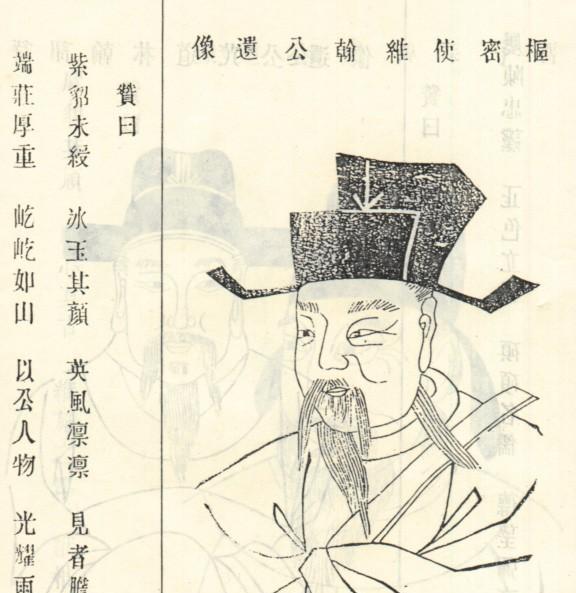 樞密使維翰公遺像
贊曰
紫貂未綬 冰玉其顏 英風凛凛 見者膽
端莊厚重 屹屹如山 以公人物 光耀